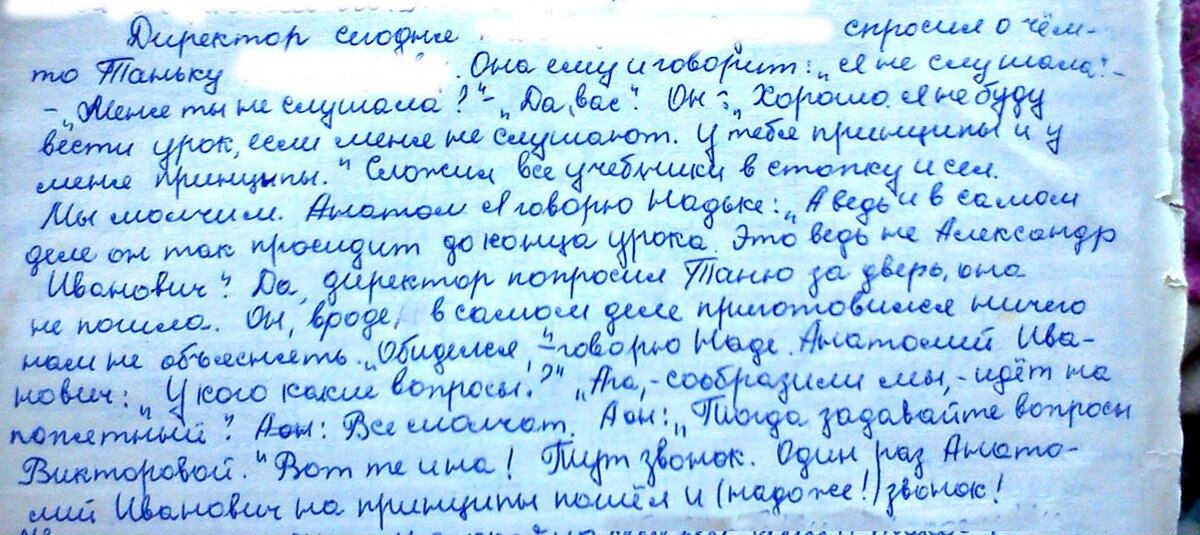 Директор сегодня спросил о чём-
то Таньку . Она ему и говорит: „Я не слушала". -
- „Меня ты не слушала?" - „Да, вас". Он: „Хорошо. Я не буду
вести урок, если меня не слушают. У тебя принципы и у
меня принципы." Сложил все учебники в стопку и сел.
Мы молчим. А потом я говорю Надьке: „А ведь и в самом
деле он так просидит до конца урока. Это ведь не Александр
Иванович". Да, директор попросил Таню за дверь, она
не пошла. Он, вроде, в самом деле приготовился ничего
нам не объяснять. „Обиделся," - говорю Наде. Анатолий Ива-
нович: „У кого какие вопросы?" „Ага, - сообразили мы, - идёт на
попятный". Все молчат. А он: „Тогда задавайте вопросы
Викторовой." Вот те и на! Тут звонок. Один раз Анато-
лий Иванович на принципы пошёл и (надо же!) звонок!